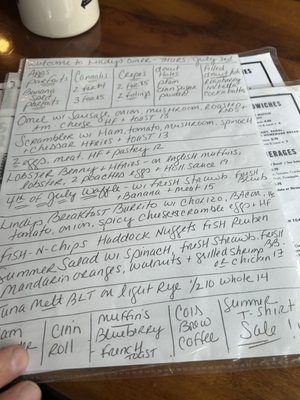 Welcome to Lindys Diner - Thurs. July 3rd
Apps
parfaits
Banana
Split
Parfait
Cannolis
2 for $4
3 for $5
Crepes
donut
Holes
plain
Cinn sugar
powder
filled
donut
raspberry
nutella
Omel w/ Sausage, onion, mushroom, roasted
Am. cheese HF + toast 13
Scrambler w/ Ham, tomato, mushroom, spinach
cheddar HFries + toast 13
2 eggs, meat, HF + pastry 12
Lobster Benny + HFries - on English muffins,
lobster, poached eggs + Holl sauce 19
4th of July Waffle - w/ Fresh Strawb.
+ Banana + meat 15
Lindys Breakfast Burrito w/ chorizo, Bacon,
tomato, onion, spicy cheese, scramble egg + HF
Fish-n-Chips Haddock Nuggets Fish Reuben
Summer Salad w/ spinach, fresh Strawb.
mandarin oranges, walnuts + grilled shrimp
or chicken 17
Tuna Melt BLT on light Rye 1/2 10 whole 14
Cinn
Roll
Muffin's
Blueberry
French
Toast
Cold
Brew
Coffee
Summer
T-Shirt
Sale!